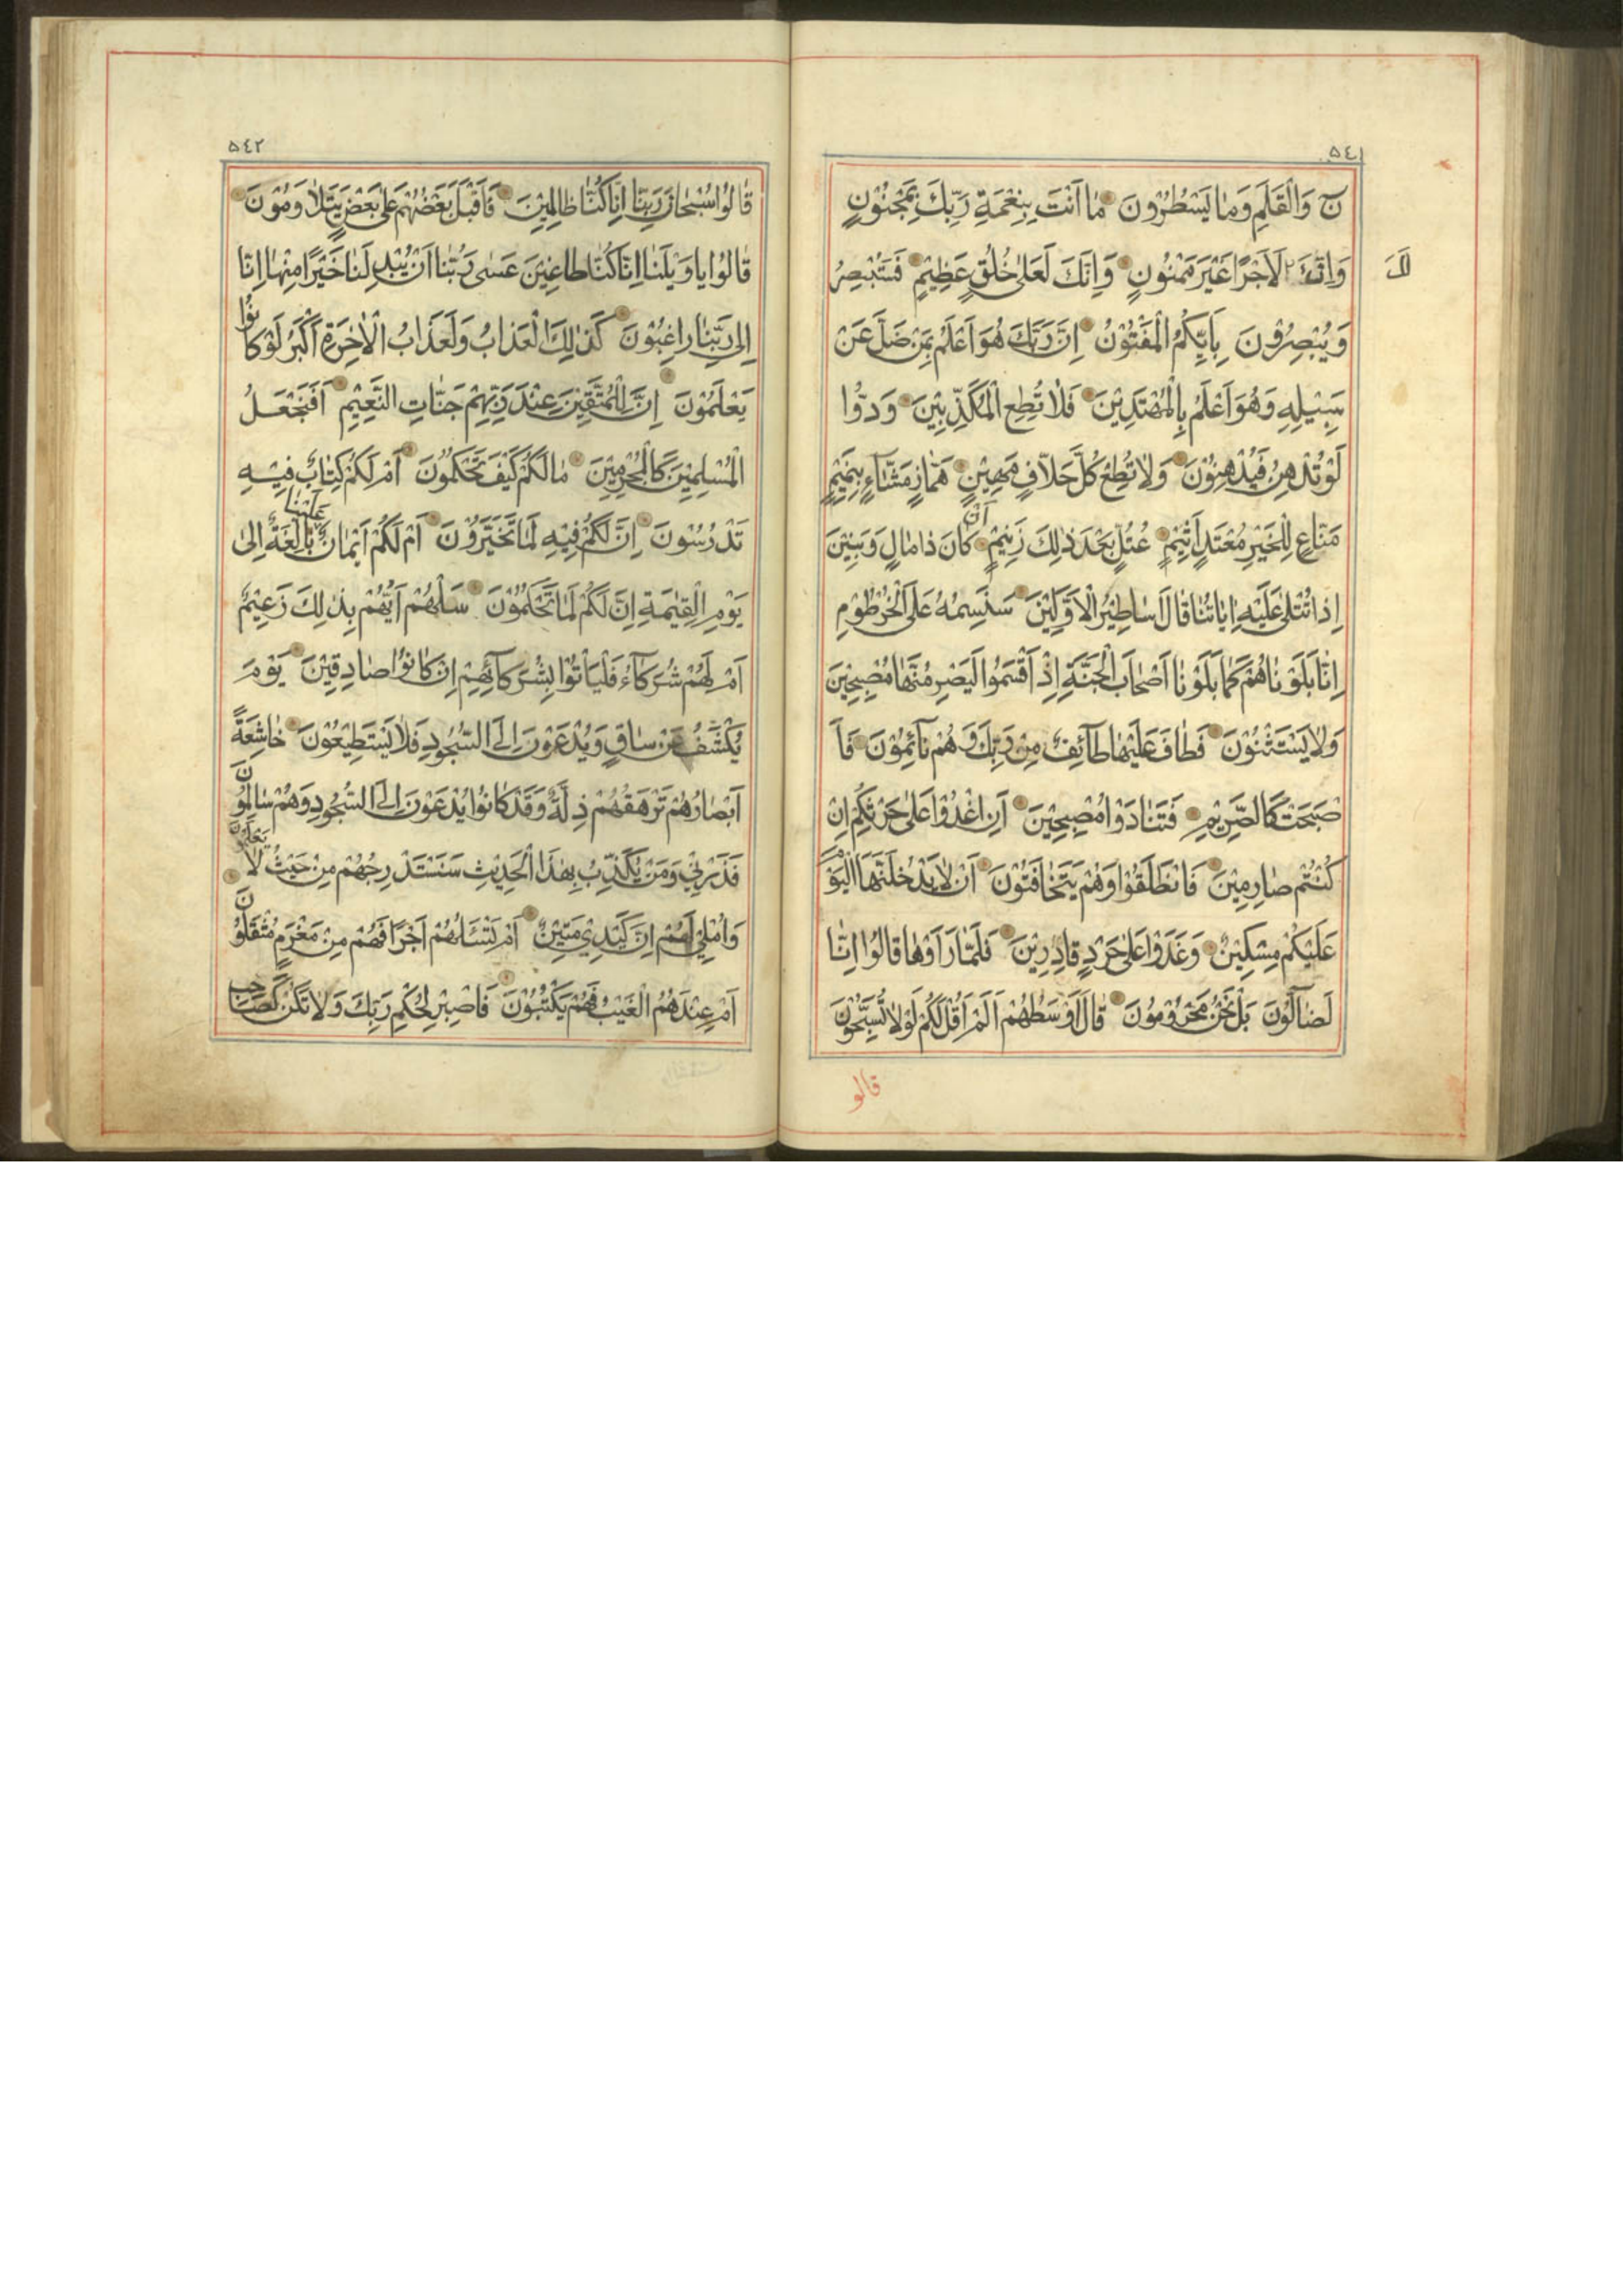 ٥٤١
نۤ وَالْقَلَمِ وَمٰا يَسْطُرُوْنَ مٰا اَنْتَ بِنِعْمَةِ رَبِّكَ بِمَجْنُوْنٍ
وَاِنَّ لَاَجْرًا غَيْرَ مَمْنُوْنٍ وَاِنَّكَ لَعَلىٰ خُلُقٍ عَظِيْمٍ فَسَتُبْصِرُ
لَكَ
وَيُبْصِرُوْنَ بِاَيِّكُمُ الْمَفْتُوْنُ اِنَّ رَبَّكَ هُوَ اَعْلَمُ بِمَنْ ضَلَّ عَنْ
سَبِيْلِهِ وَهُوَ اَعْلَمُ بِالْمُهْتَدِيْنَ فَلٰا تُطِعِ الْمُكَذِّبِيْنَ وَدُّوْا
لَوْ تُدْهِنُ فَيُدْهِنُوْنَ وَلٰا تُطِعْ كُلَّ حَلّٰافٍ مَهِيْنٍ هَمّٰازٍ مَشّٰآءٍ بِنَمِيْمٍ
مَنّٰاعٍ لِلْخَيْرِ مُعْتَدٍ اَثِيْمٍ عُتُلٍّ بَعْدَ ذٰلِكَ زَنِيْمٍ اَنْ كٰانَ ذٰا مٰالٍ وَبَنِيْنَ
اِذٰا تُتْلىٰ عَلَيْهِ اٰيٰاتُنٰا قٰالَ اَسٰاطِيْرُ الْاَوَّلِيْنَ سَنَسِمُهُ عَلَى الْخُرْطُوْمِ
اِنّٰا بَلَوْنٰاهُمْ كَمٰا بَلَوْنٰا اَصْحٰابَ الْجَنَّةِ اِذْ اَقْسَمُوْا لَيَصْرِمُنَّهٰا مُصْبِحِيْنَ
وَلٰا يَسْتَثْنُوْنَ فَطٰافَ عَلَيْهٰا طٰآئِفٌ مِنْ رَبِّكَ وَهُمْ نٰآئِمُوْنَ فَاَ
صْبَحَتْ كَالصَّرِيْمِ فَتَنٰادَوْا مُصْبِحِيْنَ اَنِ اغْدُوْا عَلىٰ حَرْثِكُمْ اِنْ
كُنْتُمْ صٰارِمِيْنَ فَانْطَلَقُوْا وَهُمْ يَتَخٰافَتُوْنَ اَنْ لٰا يَدْخُلَنَّهَا الْيَوْمَ
عَلَيْكُمْ مِسْكِيْنٌ وَغَدَوْا عَلىٰ حَرْدٍ قٰادِرِيْنَ فَلَمّٰا رَاَوْهٰا قٰالُوْا اِنّٰا
لَضٰآلُّوْنَ بَلْ نَحْنُ مَحْرُوْمُوْنَ قٰالَ اَوْسَطُهُمْ اَلَمْ اَقُلْ لَكُمْ لَوْلٰا تُسَبِّحُوْنَ
قالو
٥٤٢
قٰالُوْا سُبْحٰانَ رَبِّنٰا اِنّٰا كُنّٰا ظٰالِمِيْنَ فَاَقْبَلَ بَعْضُهُمْ عَلىٰ بَعْضٍ يَتَلٰاوَمُوْنَ
قٰالُوْا يٰا وَيْلَنٰا اِنّٰا كُنّٰا طٰاغِيْنَ عَسٰى رَبُّنٰا اَنْ يُبْدِلَنٰا خَيْرًا مِنْهٰا اِنّٰا
اِلىٰ رَبِّنٰا رٰاغِبُوْنَ كَذٰلِكَ الْعَذٰابُ وَلَعَذٰابُ الْاٰخِرَةِ اَكْبَرُ لَوْ كٰانُوْا
يَعْلَمُوْنَ اِنَّ لِلْمُتَّقِيْنَ عِنْدَ رَبِّهِمْ جَنّٰاتِ النَّعِيْمِ اَفَنَجْعَلُ
الْمُسْلِمِيْنَ كَالْمُجْرِمِيْنَ مٰا لَكُمْ كَيْفَ تَحْكُمُوْنَ اَمْ لَكُمْ كِتٰابٌ فِيْهِ
تَدْرُسُوْنَ اِنَّ لَكُمْ فِيْهِ لَمٰا تَخَيَّرُوْنَ اَمْ لَكُمْ اَيْمٰانٌ عَلَيْنٰا بٰالِغَةٌ اِلىٰ
يَوْمِ الْقِيٰمَةِ اِنَّ لَكُمْ لَمٰا تَحْكُمُوْنَ سَلْهُمْ اَيُّهُمْ بِذٰلِكَ زَعِيْمٌ
اَمْ لَهُمْ شُرَكٰآءُ فَلْيَاْتُوْا بِشُرَكٰآئِهِمْ اِنْ كٰانُوْا صٰادِقِيْنَ يَوْمَ
يُكْشَفُ عَنْ سٰاقٍ وَيُدْعَوْنَ اِلَى السُّجُوْدِ فَلٰا يَسْتَطِيْعُوْنَ خٰاشِعَةً
اَبْصٰارُهُمْ تَرْهَقُهُمْ ذِلَّةٌ وَقَدْ كٰانُوْا يُدْعَوْنَ اِلَى السُّجُوْدِ وَهُمْ سٰالِمُوْنَ
فَذَرْنِيْ وَمَنْ يُكَذِّبُ بِهٰذَا الْحَدِيْثِ سَنَسْتَدْرِجُهُمْ مِنْ حَيْثُ لٰا يَعْلَمُوْنَ
وَاُمْلِيْ لَهُمْ اِنَّ كَيْدِيْ مَتِيْنٌ اَمْ تَسْئَلُهُمْ اَجْرًا فَهُمْ مِنْ مَغْرَمٍ مُثْقَلُوْنَ
اَمْ عِنْدَهُمُ الْغَيْبُ فَهُمْ يَكْتُبُوْنَ فَاصْبِرْ لِحُكْمِ رَبِّكَ وَلٰا تَكُنْ كَصٰاحِبِ